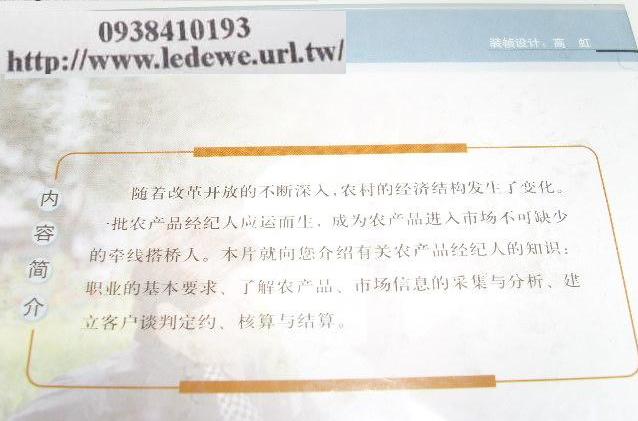 0938410193
http://www.ledewe.url.tw/
装帧设计：高 虹
内容简介
随着改革开放的不断深入，农村的经济结构发生了变化。
一批农产品经纪人应运而生，成为农产品进入市场不可缺少
的牵线搭桥人。本片就向您介绍有关农产品经纪人的知识：
职业的基本要求、了解农产品、市场信息的采集与分析、建
立客户谈判定约、核算与结算。